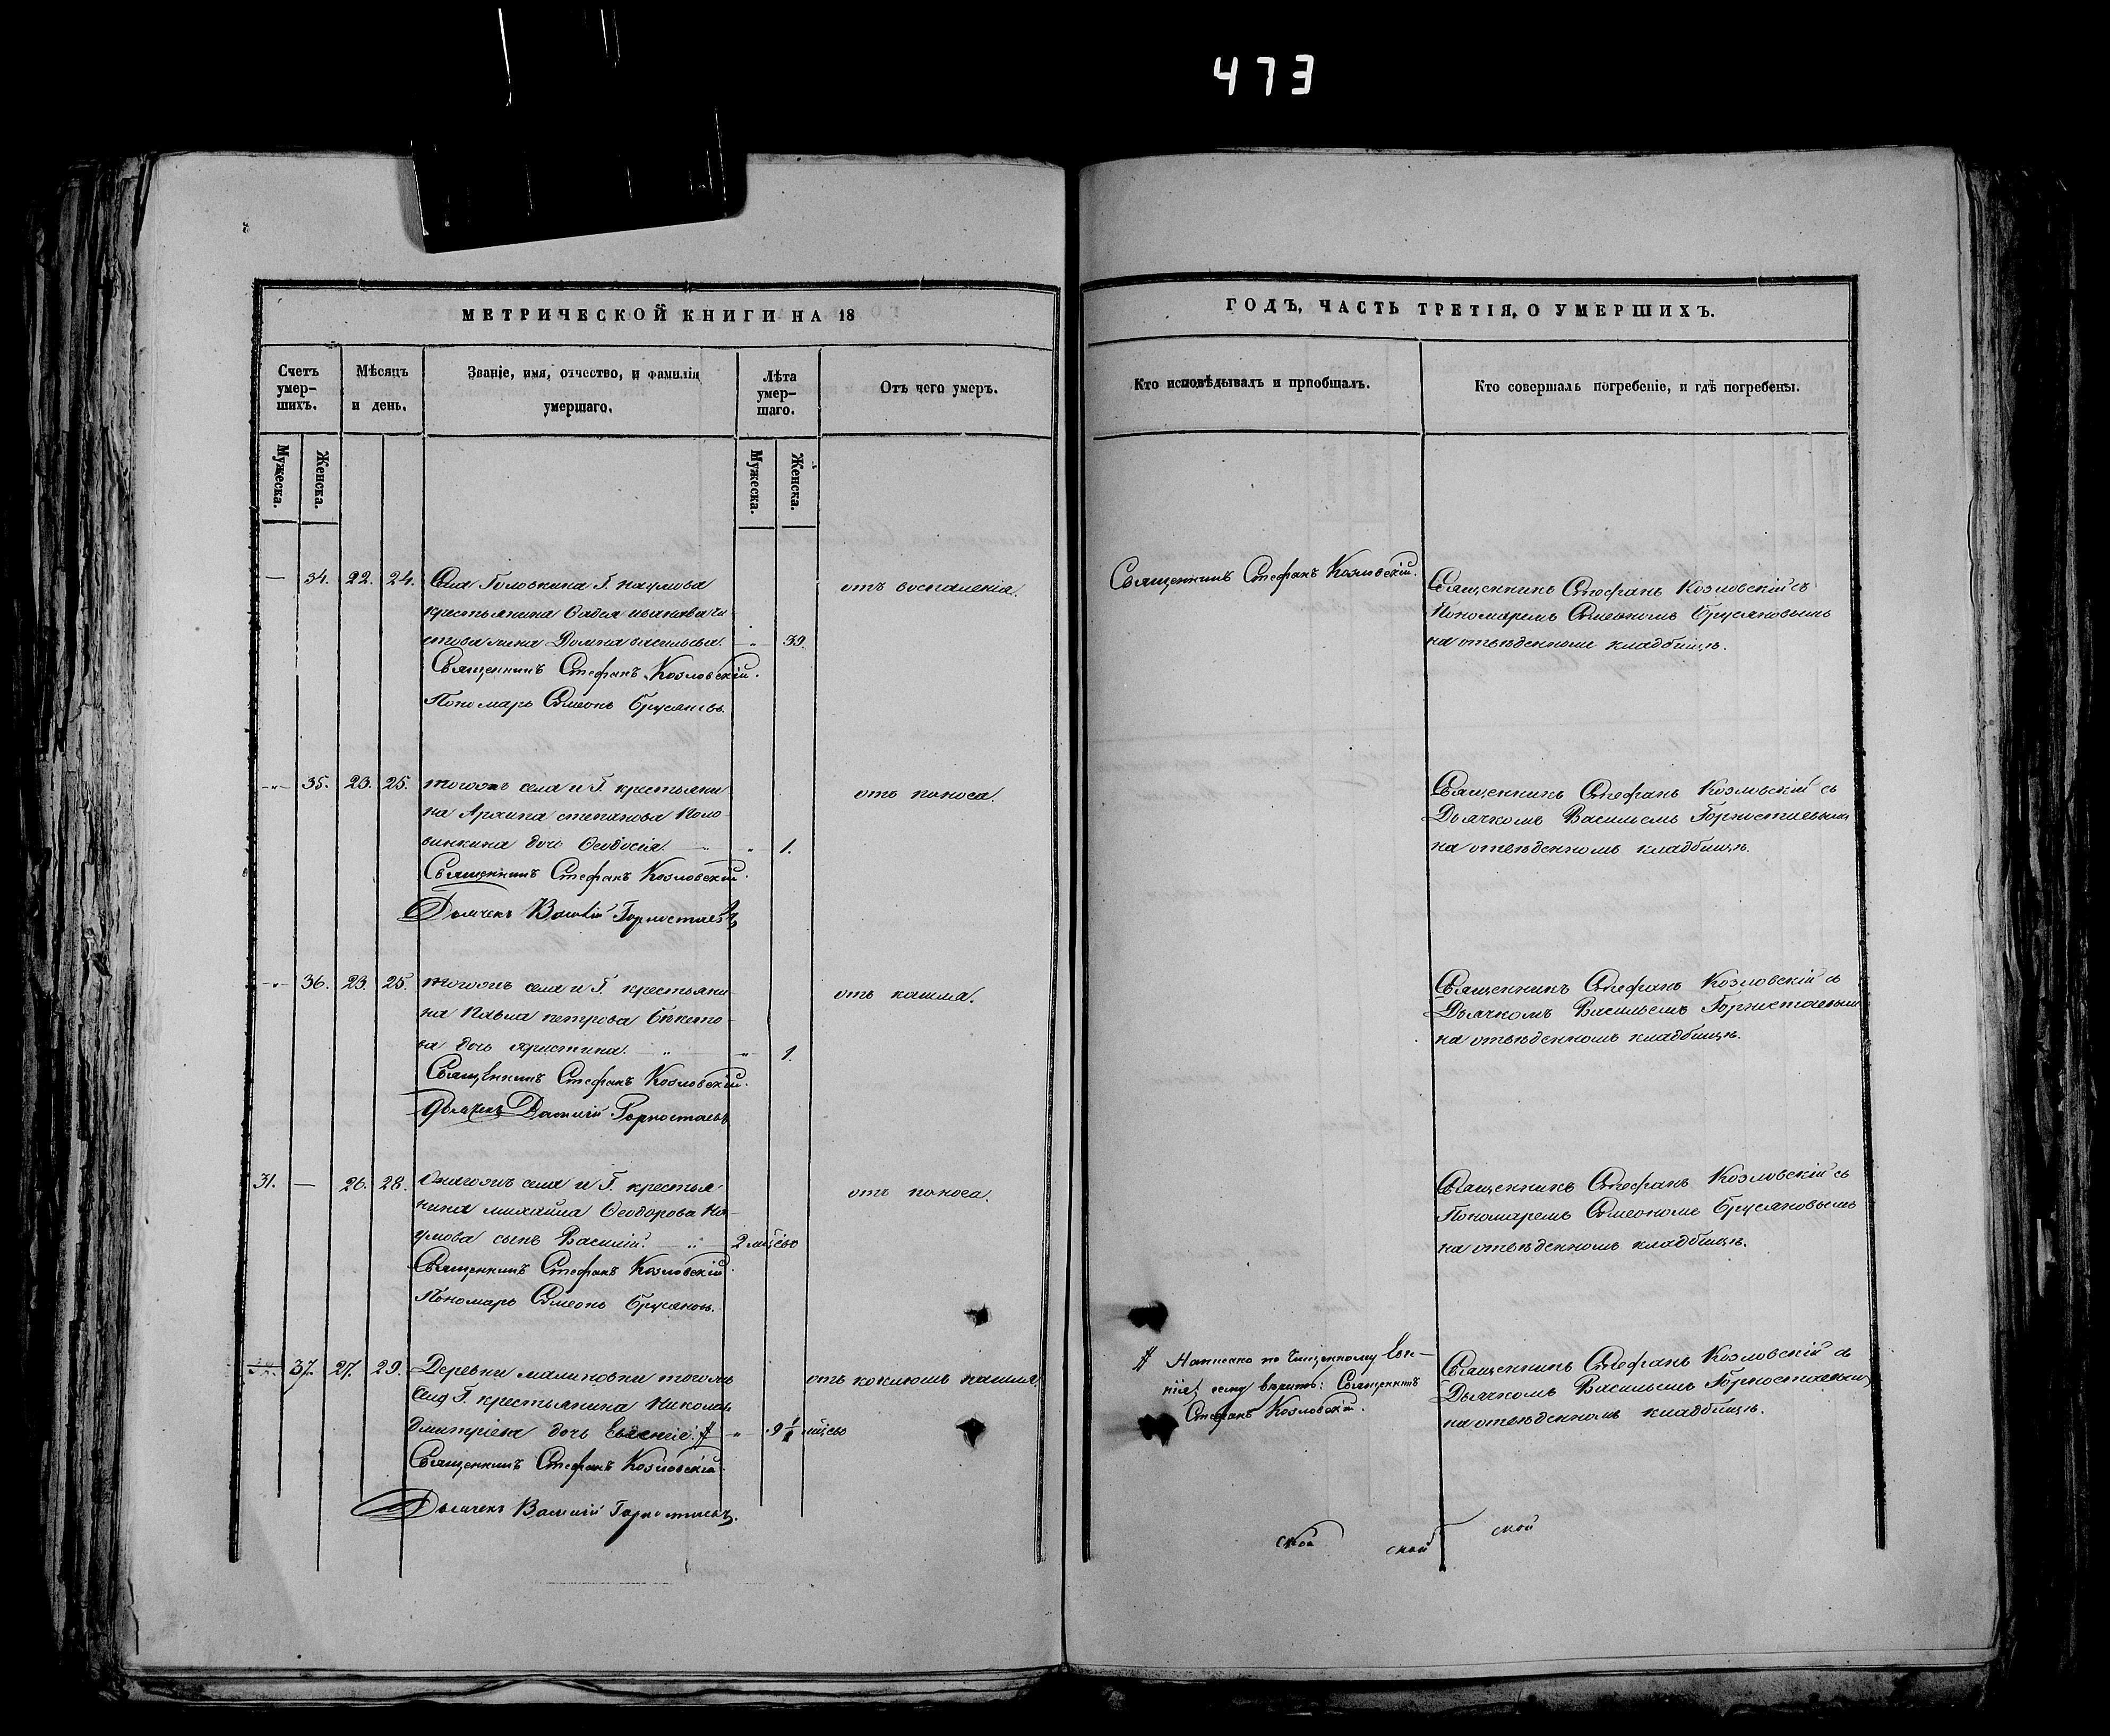 473
МЕТРИЧЕСКОЙ КНИГИ НА 18
ГОДЪ, ЧАСТЬ ТРЕТІЯ, О УМЕРШИХЪ.
Счетъ умер-
шихъ.
Мѣсяцъ
и день.
Званіе, имя, отчество, и фамилія
умершаго.
Лѣта
умер-
шаго.
Отъ чего умеръ.
Кто исповѣдывалъ и пріобщалъ.
Кто совершалъ погребеніе, и гдѣ погребены.
Мужеска.
Женска.
Мужеска.
Женска.
— 34. 22. 24. Села Головкина Г. Наумова
крестьянина
жена Домна Васильева. — „ — 39.
отъ воспаленія.
Священникъ Стефанъ Козловскій.
Пономарь Симеонъ Брусяновъ.
Священникъ Стефанъ Козловскій.
Священникъ Стефанъ Козловскій съ
Пономаремъ Симеономъ Брусяновымъ
на отведенномъ кладбищѣ.
-„- 35. 23. 25. тогожъ села и Г. крестьяни
на Архипа степанова Коло-
винкина дочь Феодосія. — „ 1.
отъ поноса.
Священникъ Стефанъ Козловскій.
Дьячекъ Василій Горностаевъ
Священникъ Стефанъ Козловскій съ
Дьячкомъ Василіемъ Горностаевымъ
на отведенномъ кладбищѣ.
-„- 36. 23. 25. тогожъ села и Г. крестьяни-
на Павла петрова
ва дочь христина. — „ — „ 1.
отъ кашля.
Священникъ Стефанъ Козловскій.
Дьячекъ Василій Горностаевъ
Священникъ Стефанъ Козловскій съ
Дьячкомъ Васильемъ Горностаевымъ
на отведенномъ кладбищѣ.
31. — 26. 28. Онагожъ села и Г. крестья-
нина михаила Феодорова На-
умова сынъ Василій. — „ 2 мѣсец
отъ поноса.
Священникъ Стефанъ Козловскій.
Пономарь Симеонъ Брусяновъ.
Священникъ Стефанъ Козловскій съ
Пономаремъ Симеономъ Брусяновымъ
на отведенномъ кладбищѣ.
37. 27. 29. Деревни малиновки тогожъ
Г. крестьянина Николая
дмитріева дочь
отъ кашля.
Священникъ Стефанъ Козловскій.
Дьячекъ Василій Горностаевъ.
Написано по чищенному
сему вѣрить: Священникъ
Стефанъ Козловскій.
Священникъ Стефанъ Козловскій съ
Дьячкомъ Васильемъ Горностаевымъ
на отведенномъ кладбищѣ.
ской ской ской